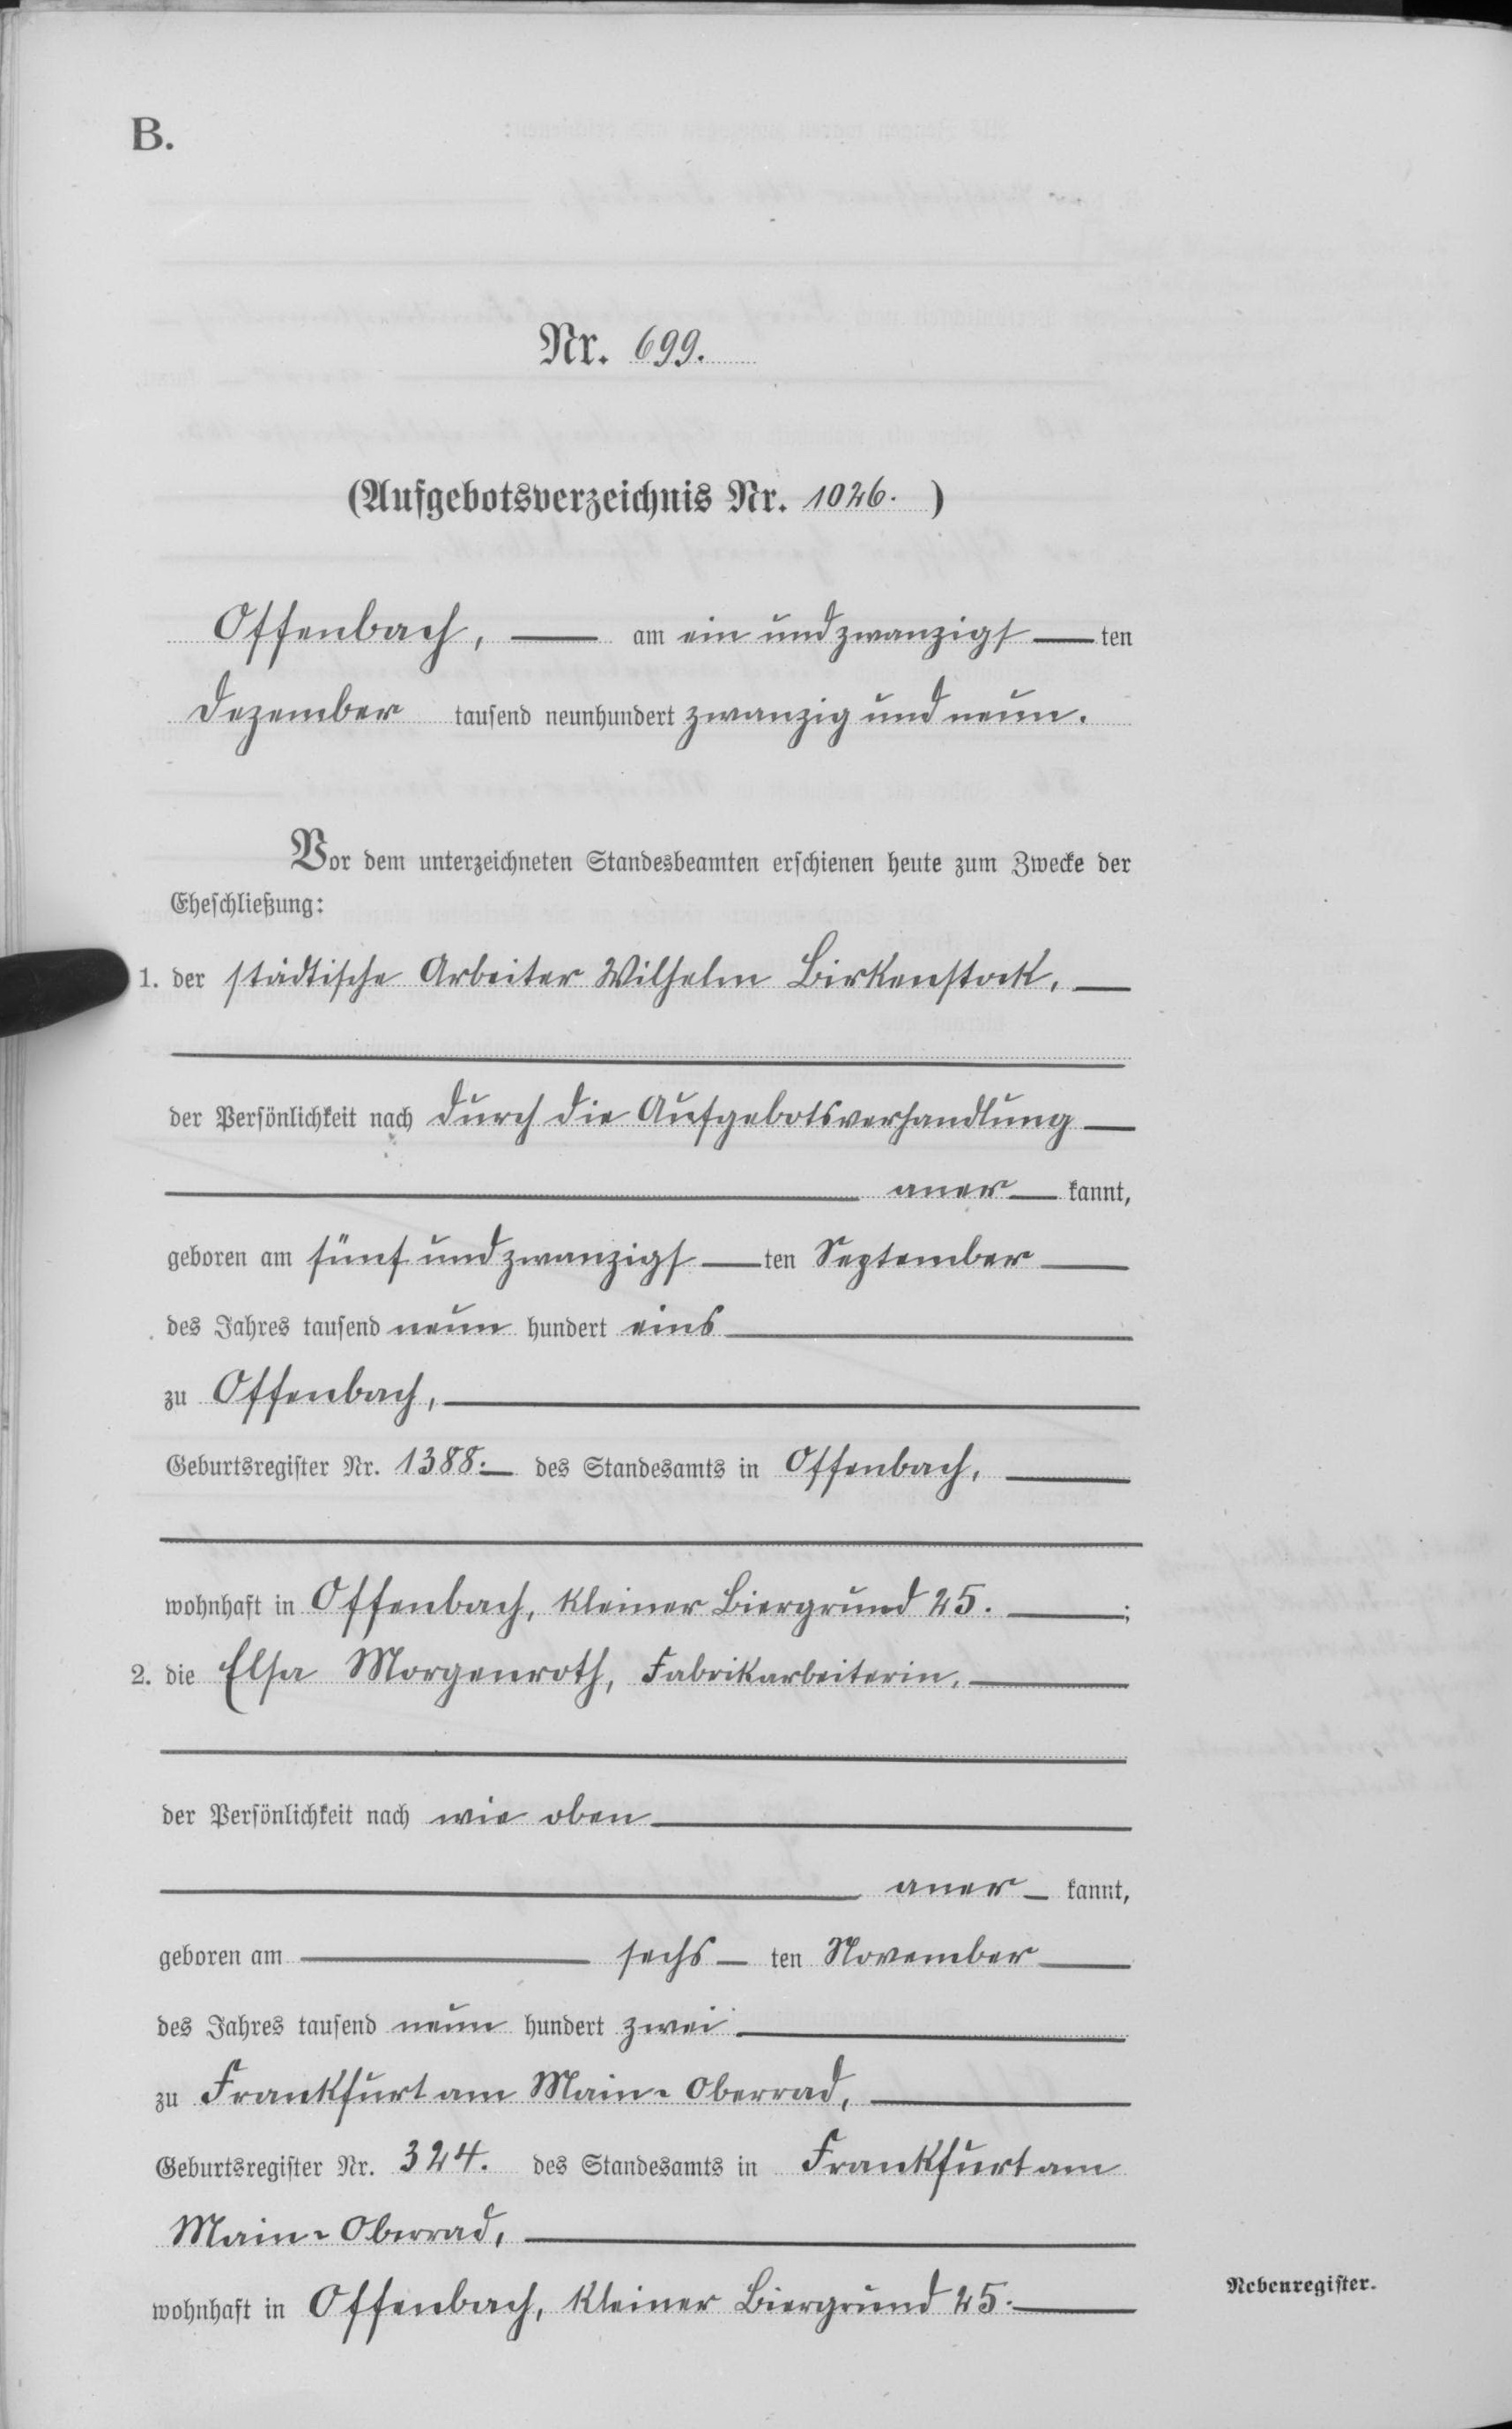 B.
Nr. 699.
(Aufgebotsverzeichnis Nr. 1026. )
Offenbach, — am ein und zwanzigs — ten
Dezember tausend neunhundert zwanzig und neun.
Vor dem unterzeichneten Standesbeamten erschienen heute zum Zwecke der
Eheschließung:
1. der städtische Arbeiter Wilhelm Birkenstock, —
der Persönlichkeit nach durch die Aufgebotsverhandlung —
aner — kannt,
geboren am fünf und zwanzigs — ten September —
des Jahres tausend neun hundert eins —
zu Offenbach, —
Geburtsregister Nr. 1388. — des Standesamts in Offenbach, —
wohnhaft in Offenbach, kleiner Biergrund 25. — ;
2. die Elsa Morgenroth, Fabrikarbeiterin, —
der Persönlichkeit nach wie oben —
aner — kannt,
geboren am — sechs — ten November —
des Jahres tausend neun hundert zwei —
zu Frankfurt am Main-Oberrad, —
Geburtsregister Nr. 324. des Standesamts in Frankfurt am
Main-Oberrad, —
wohnhaft in Offenbach, kleiner Biergrund 25. —
Nebenregister.